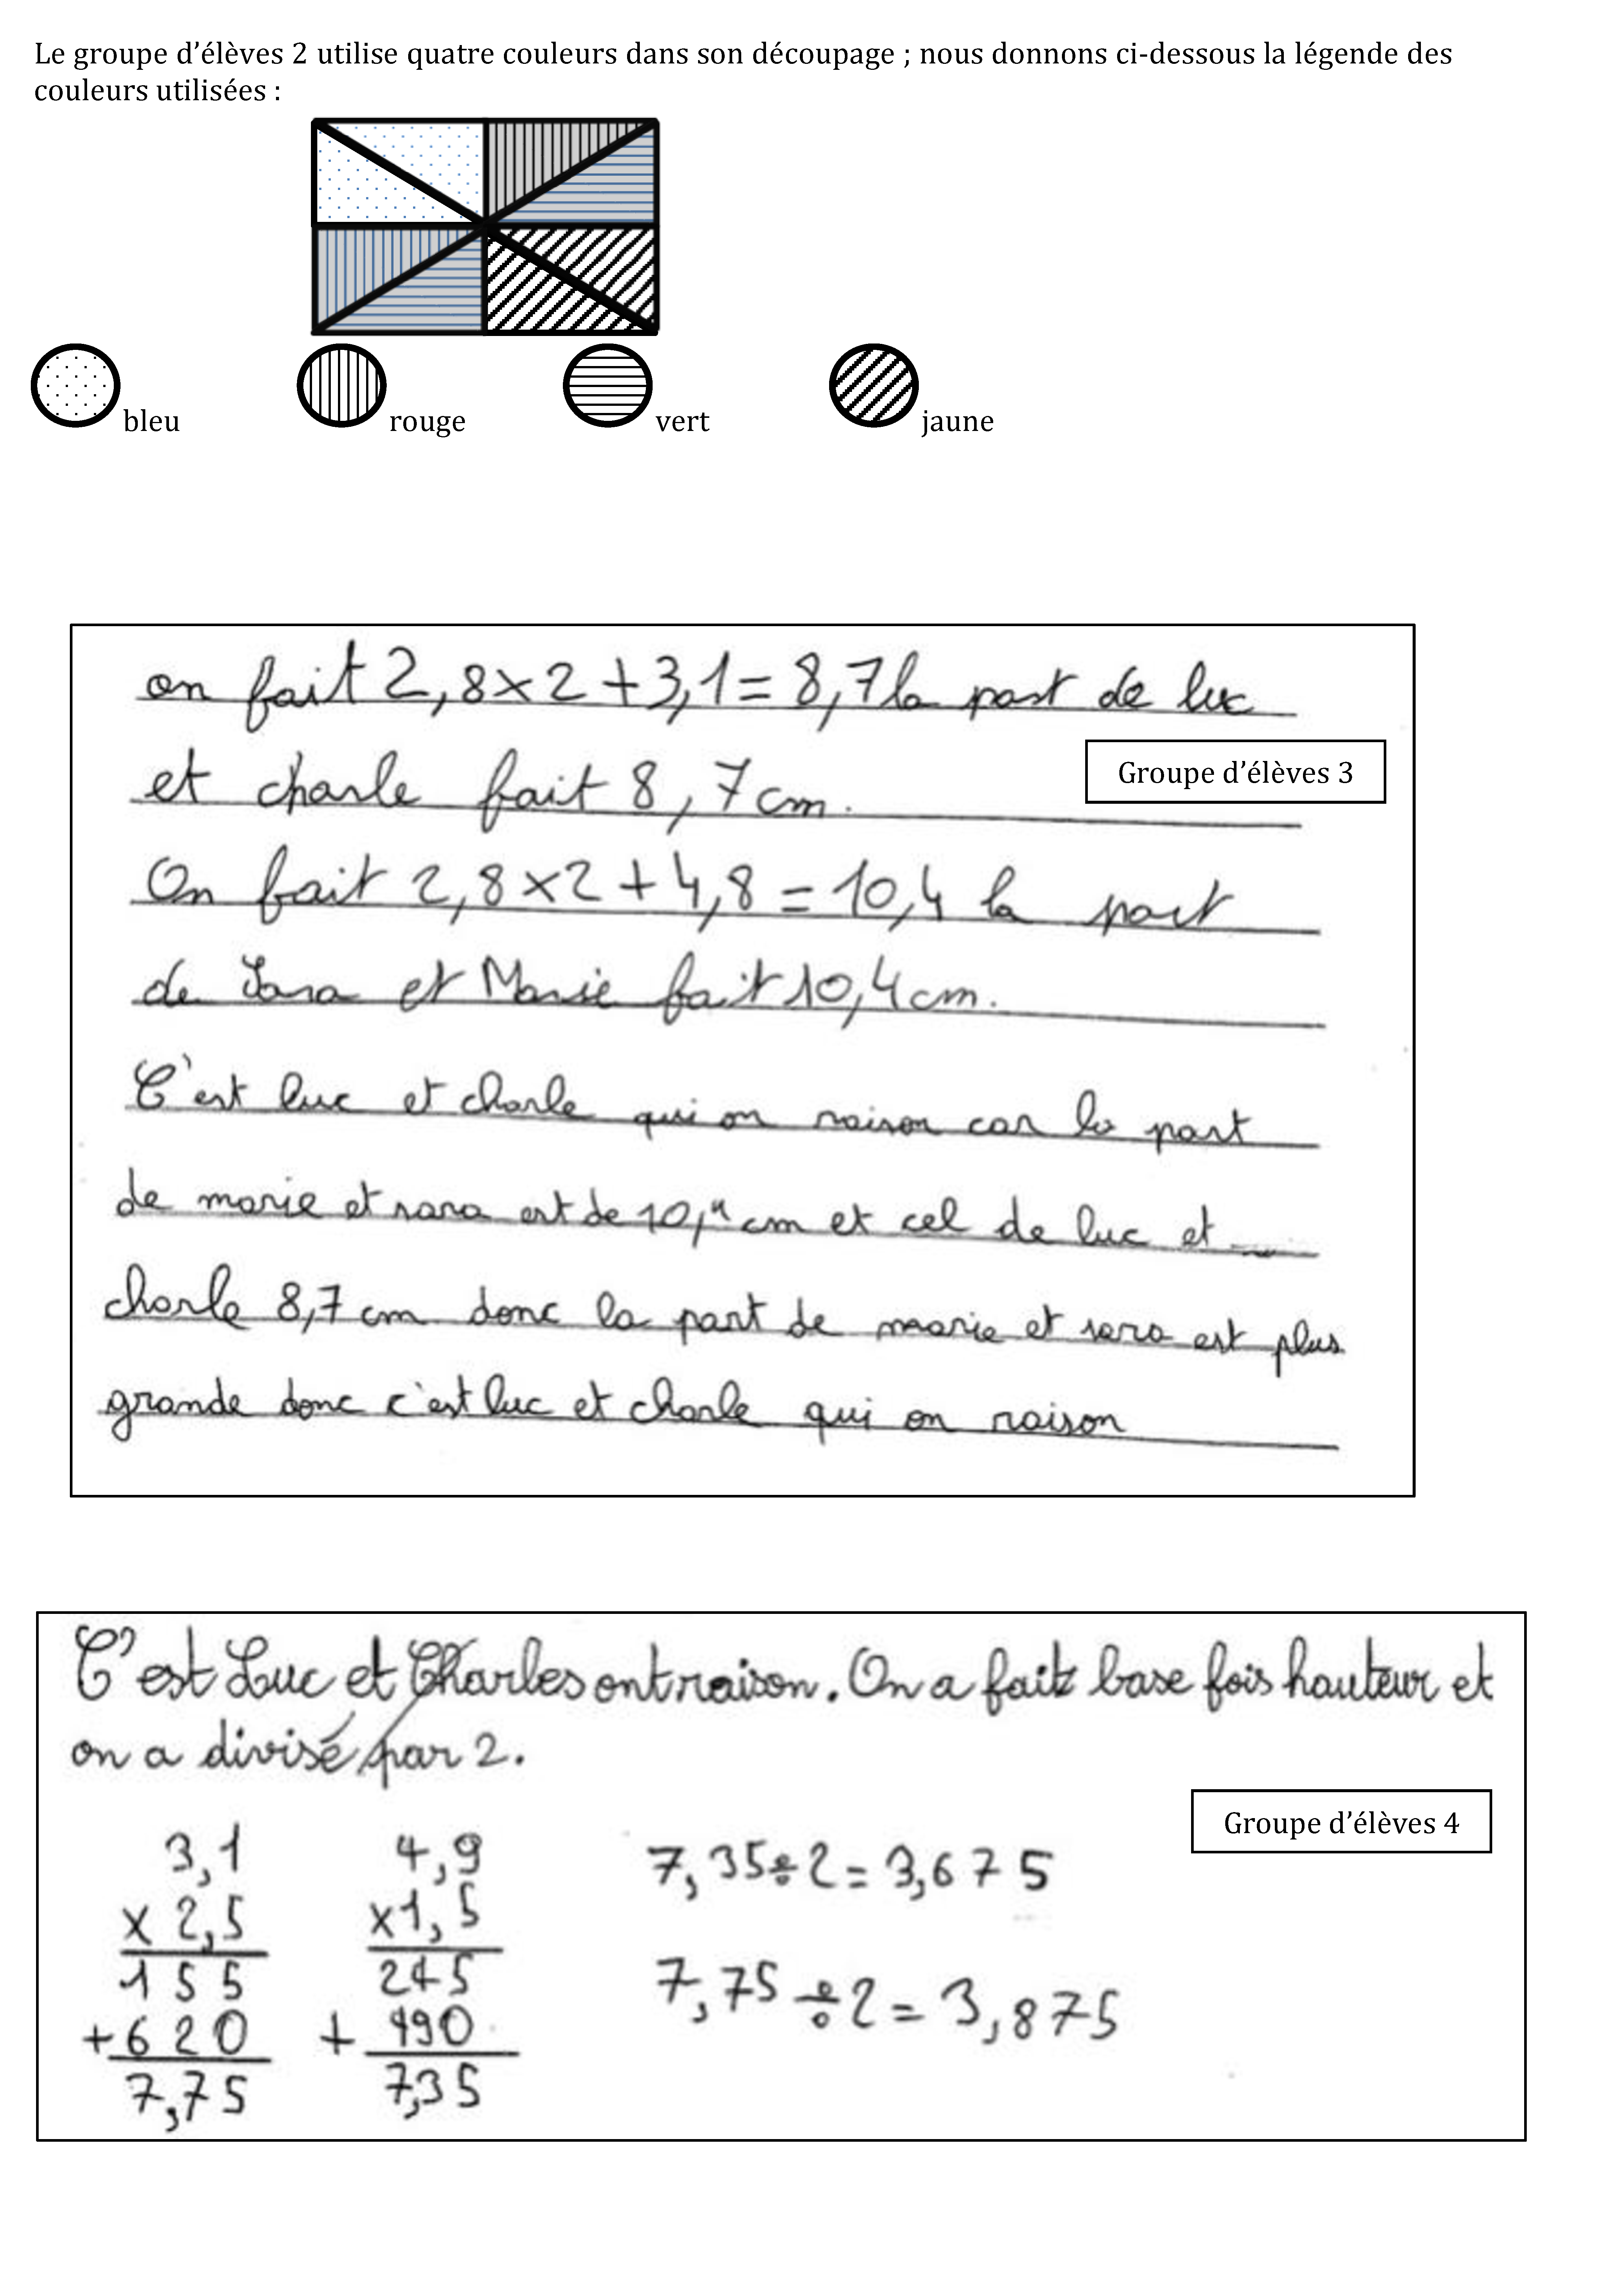 Le groupe d’élèves 2 utilise quatre couleurs dans son découpage ; nous donnons ci-dessous la légende des
couleurs utilisées :
bleu rouge vert jaune
on fait 2,8x2+3,1=8,7 la part de luc
et charle fait 8,7cm.
Groupe d’élèves 3
On fait 2,8x2+4,8=10,4 la part
de Sara et Marie fait 10,4cm.
C'est luc et charle qui on raison car la part
de marie et sara est de 10,4 cm et cel de luc et
charle 8,7 cm donc la part de marie et sara est plus
grande donc c'est luc et charle qui on raison
C'est Luc et Charles ont raison. On a fait base fois hauteur et
on a divisé par 2.
Groupe d’élèves 4
3,1 4,9 7,35÷2=3,675
x 2,5 x1,5
155 245 7,75÷2=3,875
+620 + 490
7,75 7,35